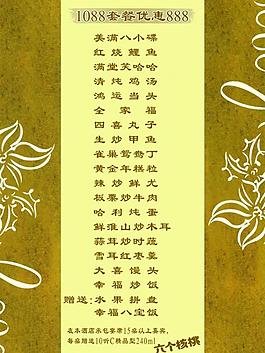 1088套餐优惠888
美满八小碟
红烧鲤鱼
满堂笑哈哈
清炖鸡汤
鸿运当头
全家福
四喜丸子
生炒甲鱼
雀巢鸳鸯丁
黄金年糕粒
辣炒鲜尤
板栗炒牛肉
哈利炖蛋
鲜淮山炒木耳
蒜茸炒时蔬
雪耳红枣羹
大喜馒头
幸福炒饭
赠送：水果拼盘
幸福八宝饭
在本酒店承包宴席15桌以上嘉宾，
每桌赠送10听C精品型240ml
六个核桃